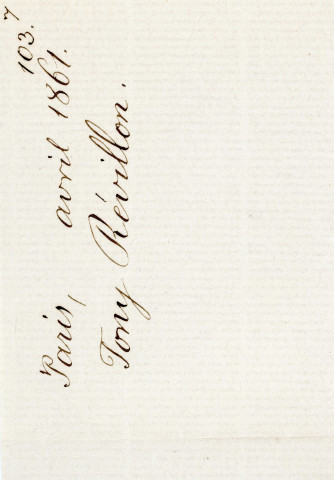 103.7
Paris, avril 1861.
Tony Révillon.